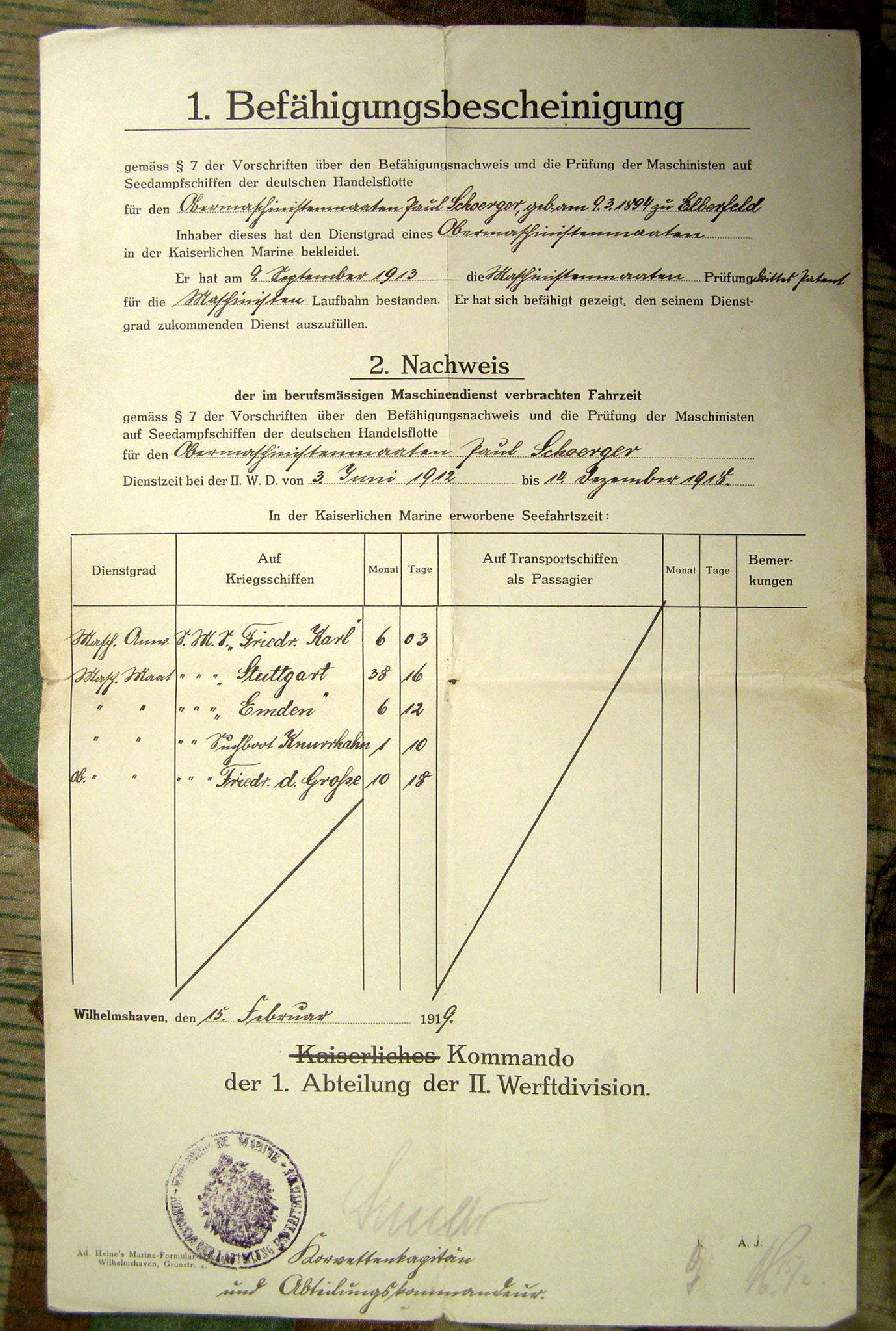 1. Befähigungsbescheinigung
gemäss § 7 der Vorschriften über den Befähigungsnachweis und die Prüfung der Maschinisten auf
Seedampfschiffen der deutschen Handelsflotte
für den Obermaschinistenmaaten Paul Schoerger, geb. am 9.3.1894 zu Elberfeld
Inhaber dieses hat den Dienstgrad eines Obermaschinistenmaaten
in der Kaiserlichen Marine bekleidet.
Er hat am 9 September 1913 die Maschinistenmaaten Prüfung drittes Patent
für die Maschinisten Laufbahn bestanden. Er hat sich befähigt gezeigt, den seinem Dienst-
grad zukommenden Dienst auszufüllen.
2. Nachweis
der im berufsmässigen Maschinendienst verbrachten Fahrzeit
gemäss § 7 der Vorschriften über den Befähigungsnachweis und die Prüfung der Maschinisten
auf Seedampfschiffen der deutschen Handelsflotte
für den Obermaschinistenmaaten Paul Schoerger
Dienstzeit bei der II. W. D. von 3. Juni 1912 bis Dezember 1918.
In der Kaiserlichen Marine erworbene Seefahrtszeit:
Dienstgrad Auf Kriegsschiffen Monat Tage Auf Transportschiffen als Passagier Monat Tage Bemer-kungen
Masch. Anw. S. M. S. „Friedr. Karl" 6 03
Masch. Maat " " " „Stuttgart 38 16
" " " " " „Emden" 6 12
" " " " Suchboot Knurrhahn 1 10
Ob. " " " " " Friedr. d. Grosze 10 18
Wilhelmshaven, den 15. Februar 1919.
Kaiserliches Kommando
der 1. Abteilung der II. Werftdivision.
MARINE
Korvettenkapitän
und Abteilungskommandeur.
A. J.
Ad. Heine's Marine-Formular
Wilhelmshaven, Grünstr.